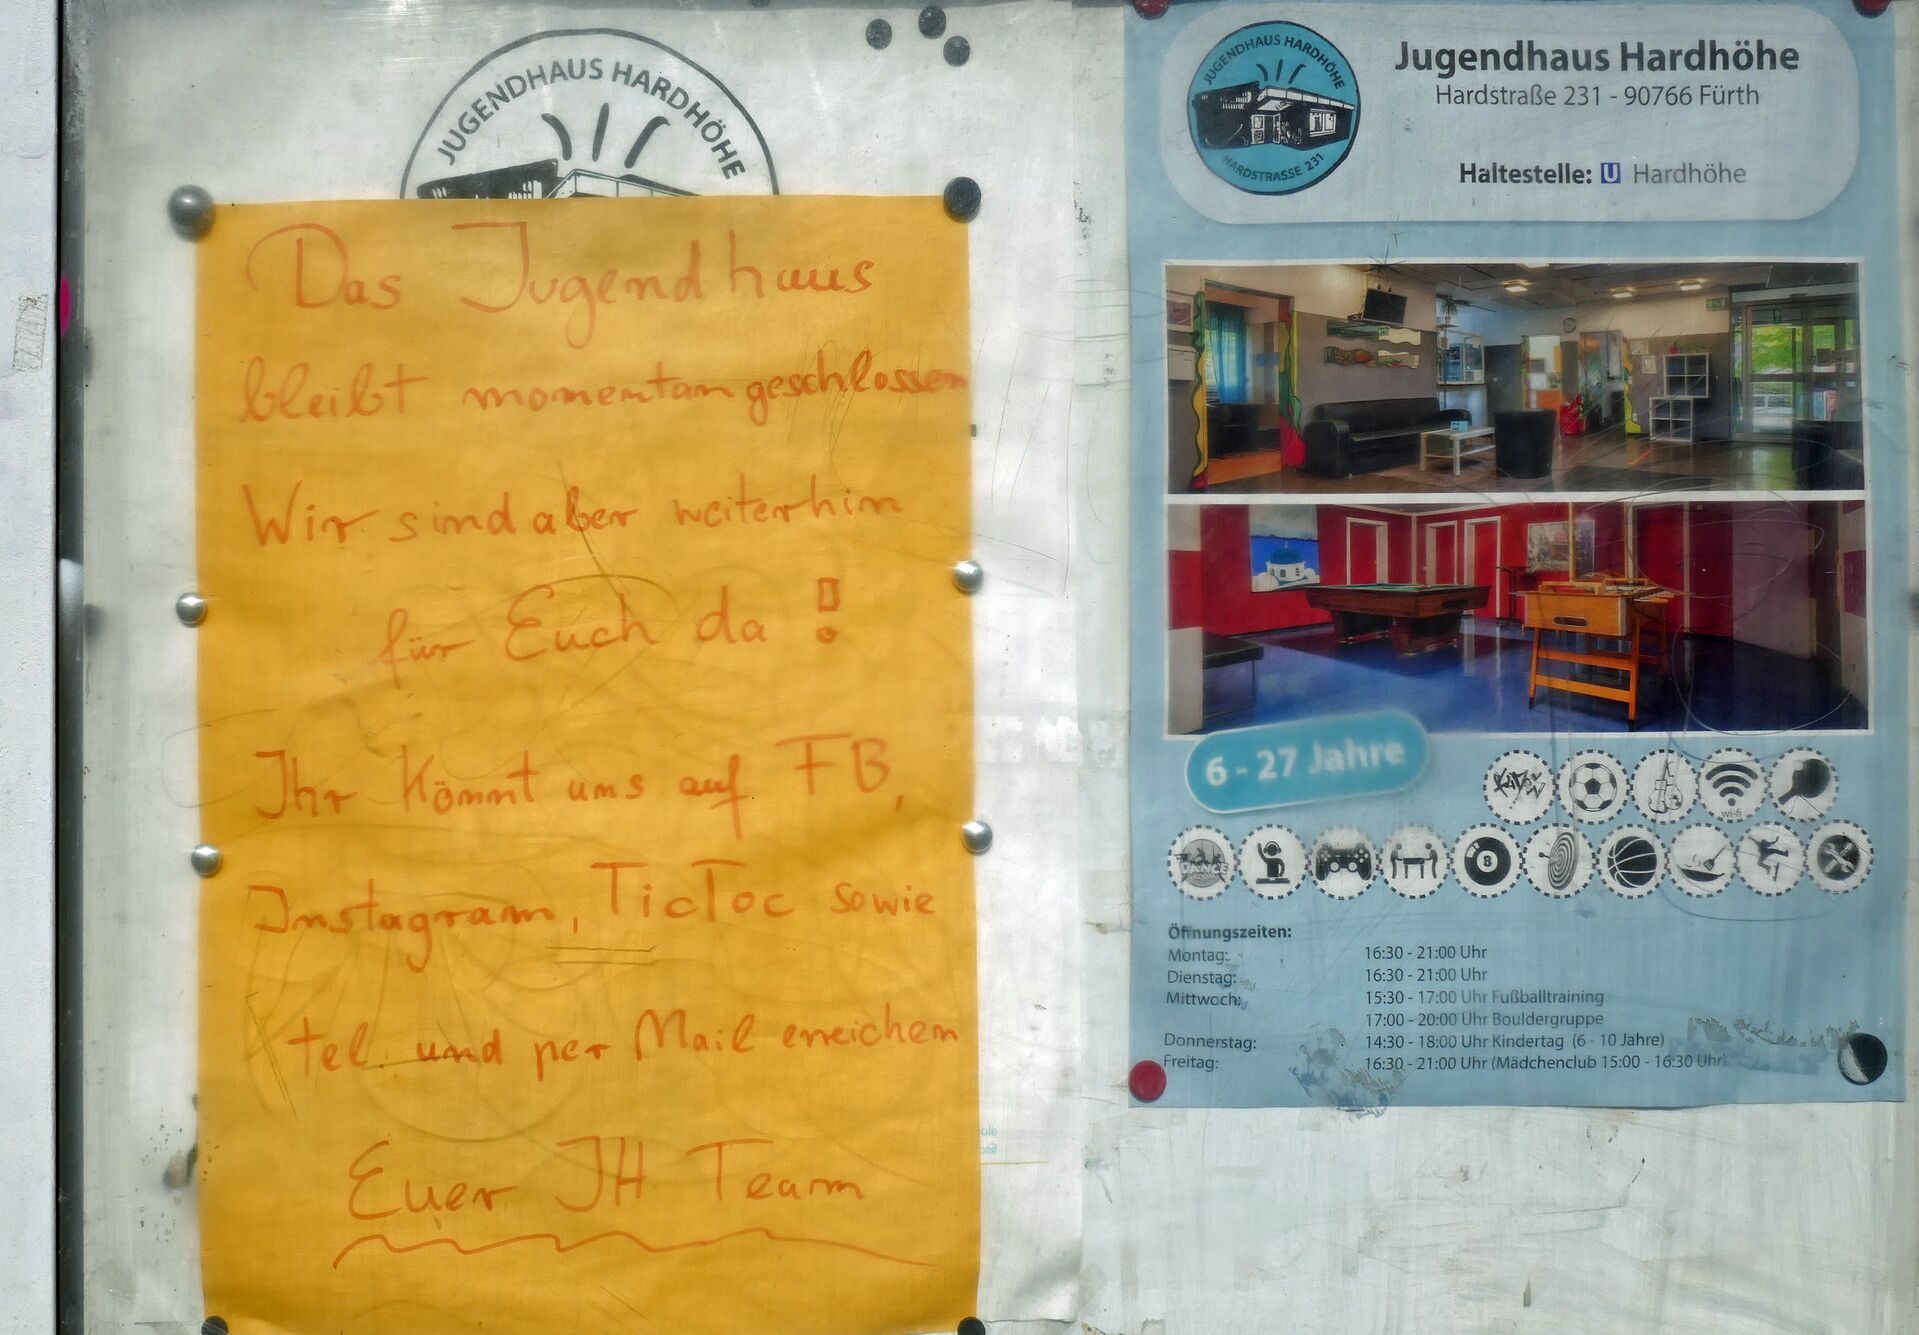 JUGENDHAUS HARDHÖHE
Das Jugendhaus
bleibt momentan geschlossen
Wir sind aber weiterhin
für Euch da !
Ihr könnt uns auf FB,
Instagram, TicToc sowie
tel. und per Mail erreichen
Euer JH Team
JUGENDHAUS HARDHÖHE
HARDSTRASSE 231
Jugendhaus Hardhöhe
Hardstraße 231 - 90766 Fürth
Haltestelle: U Hardhöhe
6 - 27 Jahre
wi-fi
DANCE
ROOM
8
Öffnungszeiten:
Montag: 16:30 - 21:00 Uhr
Dienstag: 16:30 - 21:00 Uhr
Mittwoch: 15:30 - 17:00 Uhr Fußballtraining
17:00 - 20:00 Uhr Bouldergruppe
Donnerstag: 14:30 - 18:00 Uhr Kindertag (6 - 10 Jahre)
Freitag: 16:30 - 21:00 Uhr (Mädchenclub 15:00 - 16:30 Uhr)